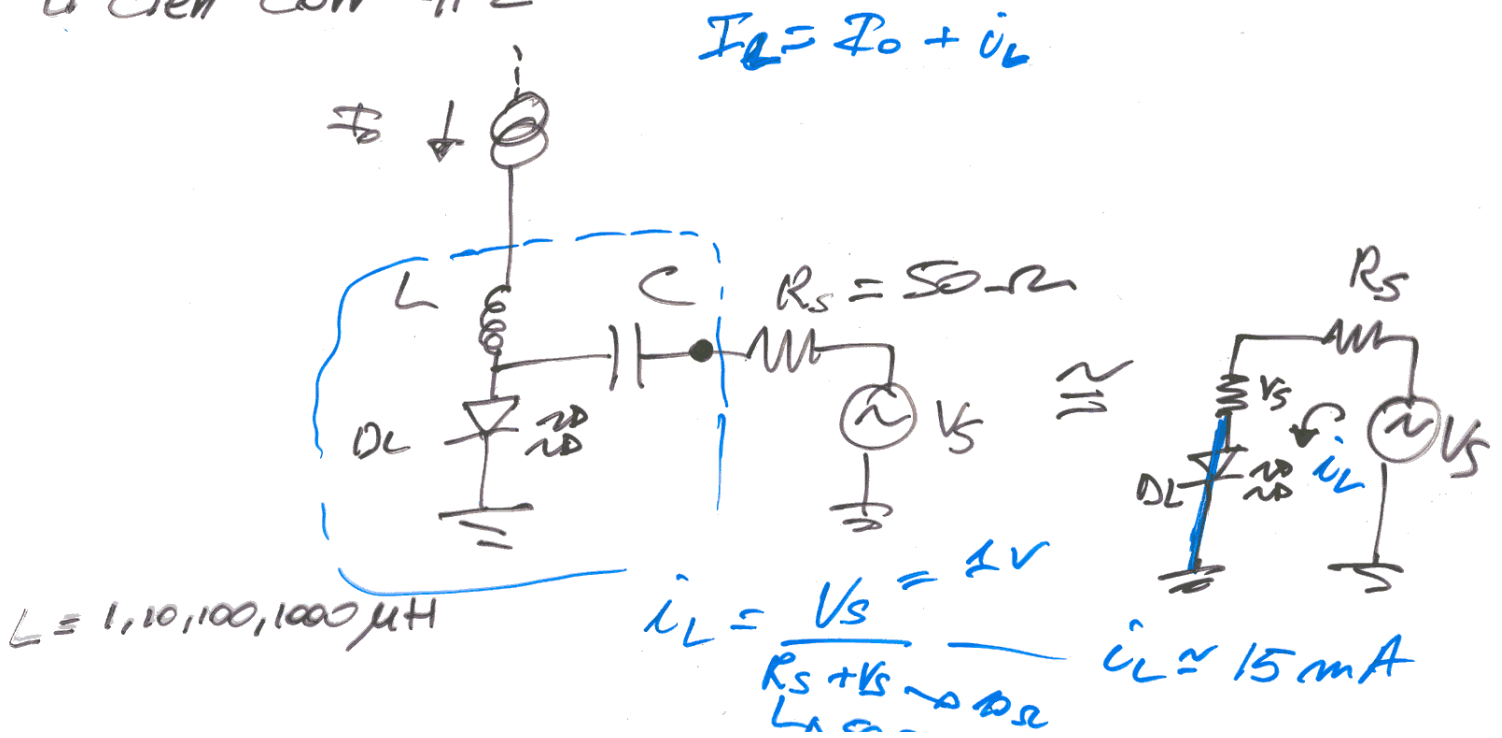 I_L = I_0 + i_L
I_0
L
C
R_S = 50 Ω
R_S
DL
V_S
≅
V_S
DL
i_L
V_S
L = 1, 10, 100, 1000 μH
i_L = V_S = 1V
R_S + V_S → 10 Ω
i_L ≃ 15 mA